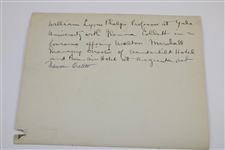 William Lyon Phelps Professor at Yale
University with Glenna Collett in a
foursome opposing Walton Marshall
managing director of Vanderbilt Hotel
and Bon Air Hotel at Augusta and